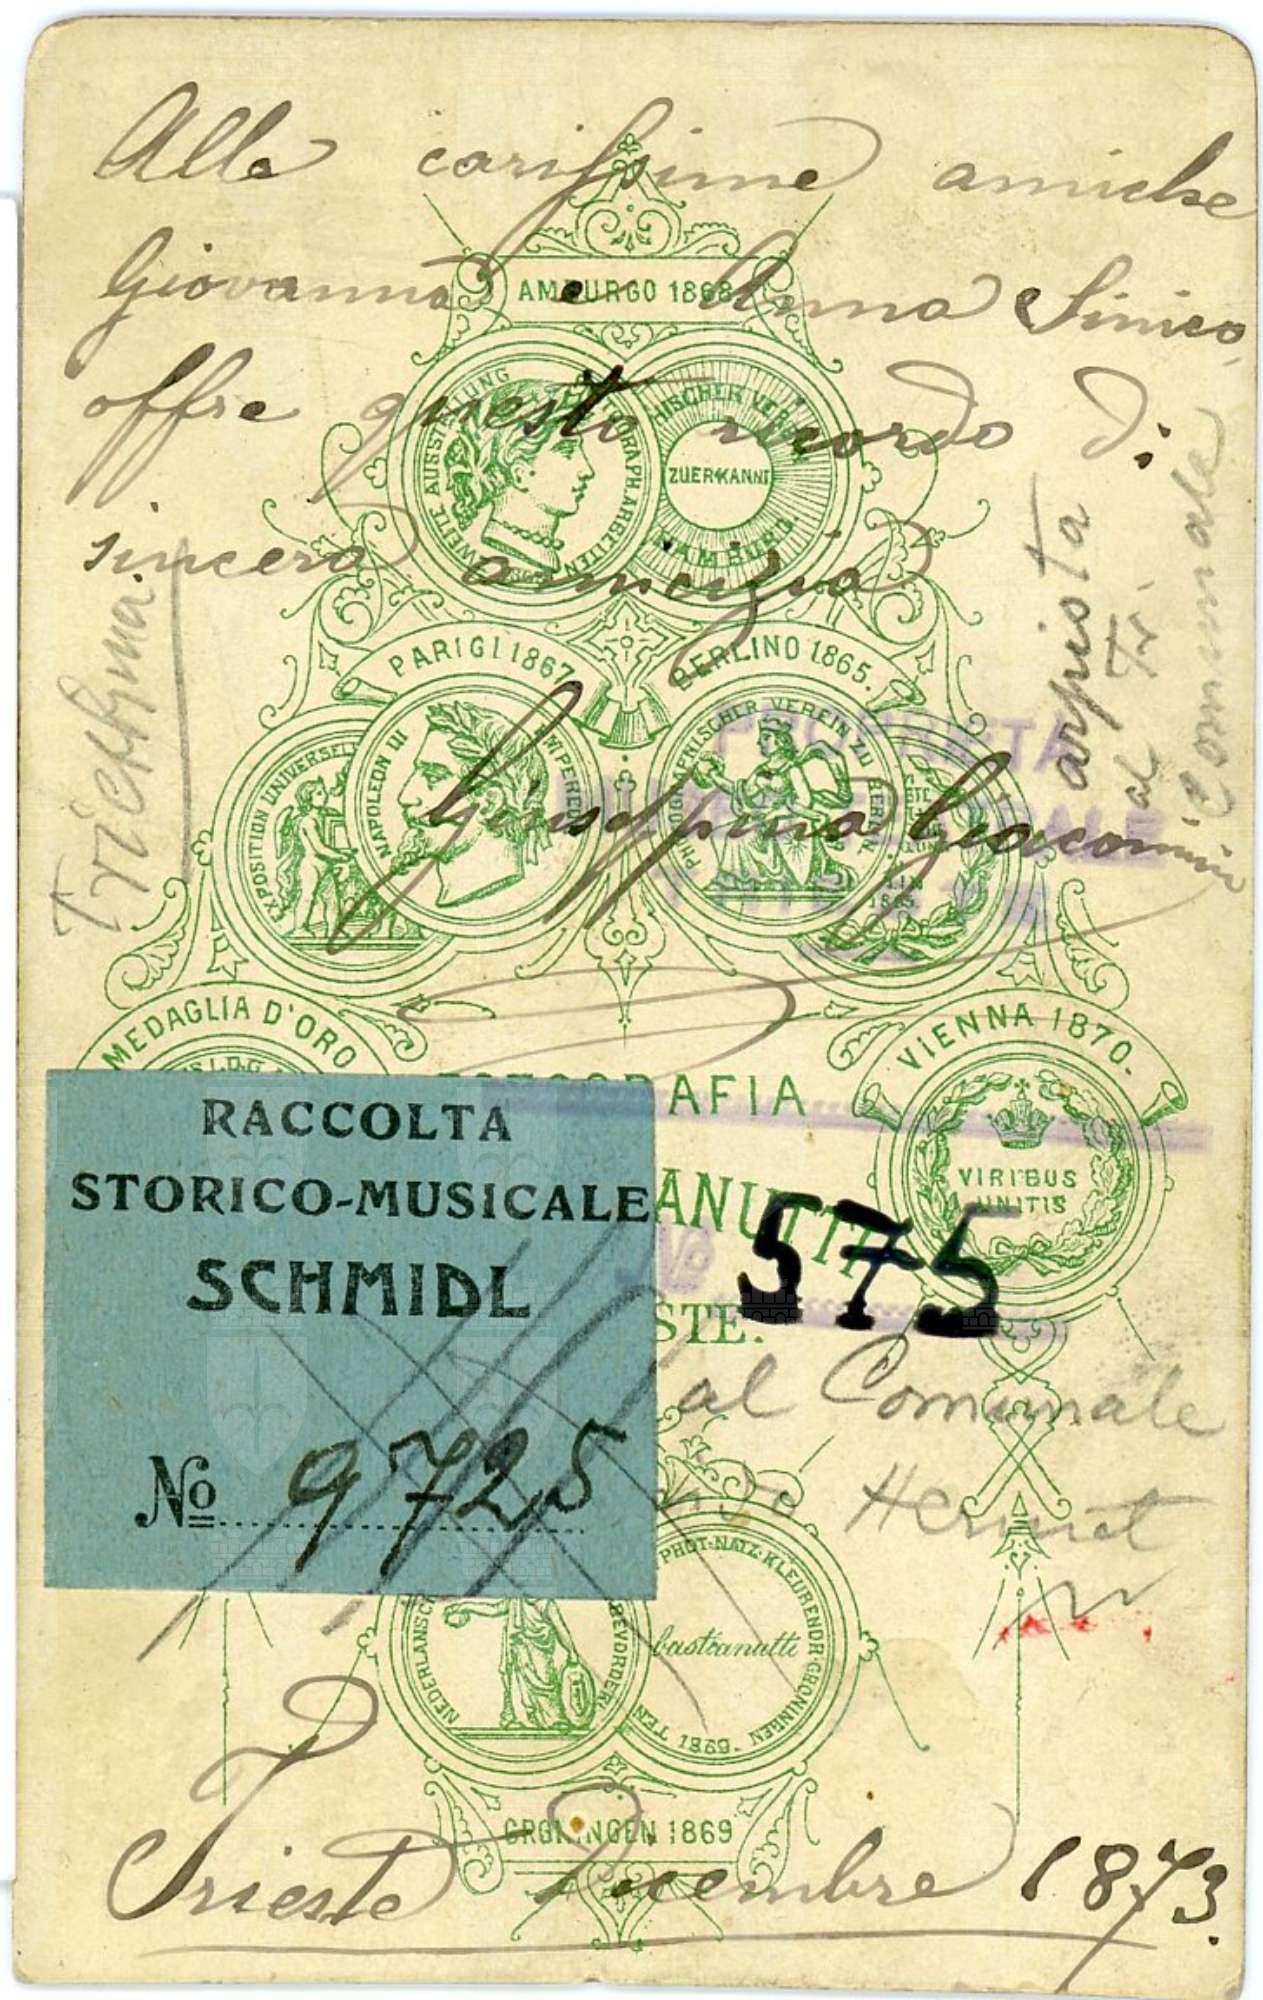 Alle carissime amiche
Giovanna e Anna Sinico,
offre questo ricordo di
sincera amicizia
Giuseppina Giacomini
Triestina
arpista
al Tr.
Comunale
AMBURGO 1868
ZWEITE AUSSTELLUNG
ZUERKANNT
HAMBURG
PARIGI 1867
BERLINO 1865.
EXPOSITION UNIVERSELLE
NAPOLEON III IMPEREUR
PHOTOGRAPHISCHER VEREIN ZU BERLIN.
BERLIN
1865.
MEDAGLIA D'ORO
VIENNA 1870.
VIRIBUS
UNITIS
AFIA
ANUTTI
STE.
575
RACCOLTA
STORICO-MUSICALE
SCHMIDL
No 9725
al Comunale
Hermet
PHOT·NATZ·KLEURENDR·GRONINGEN·
TEN 1869
bastianutti
GRONINGEN 1869
Trieste Dicembre 1873.